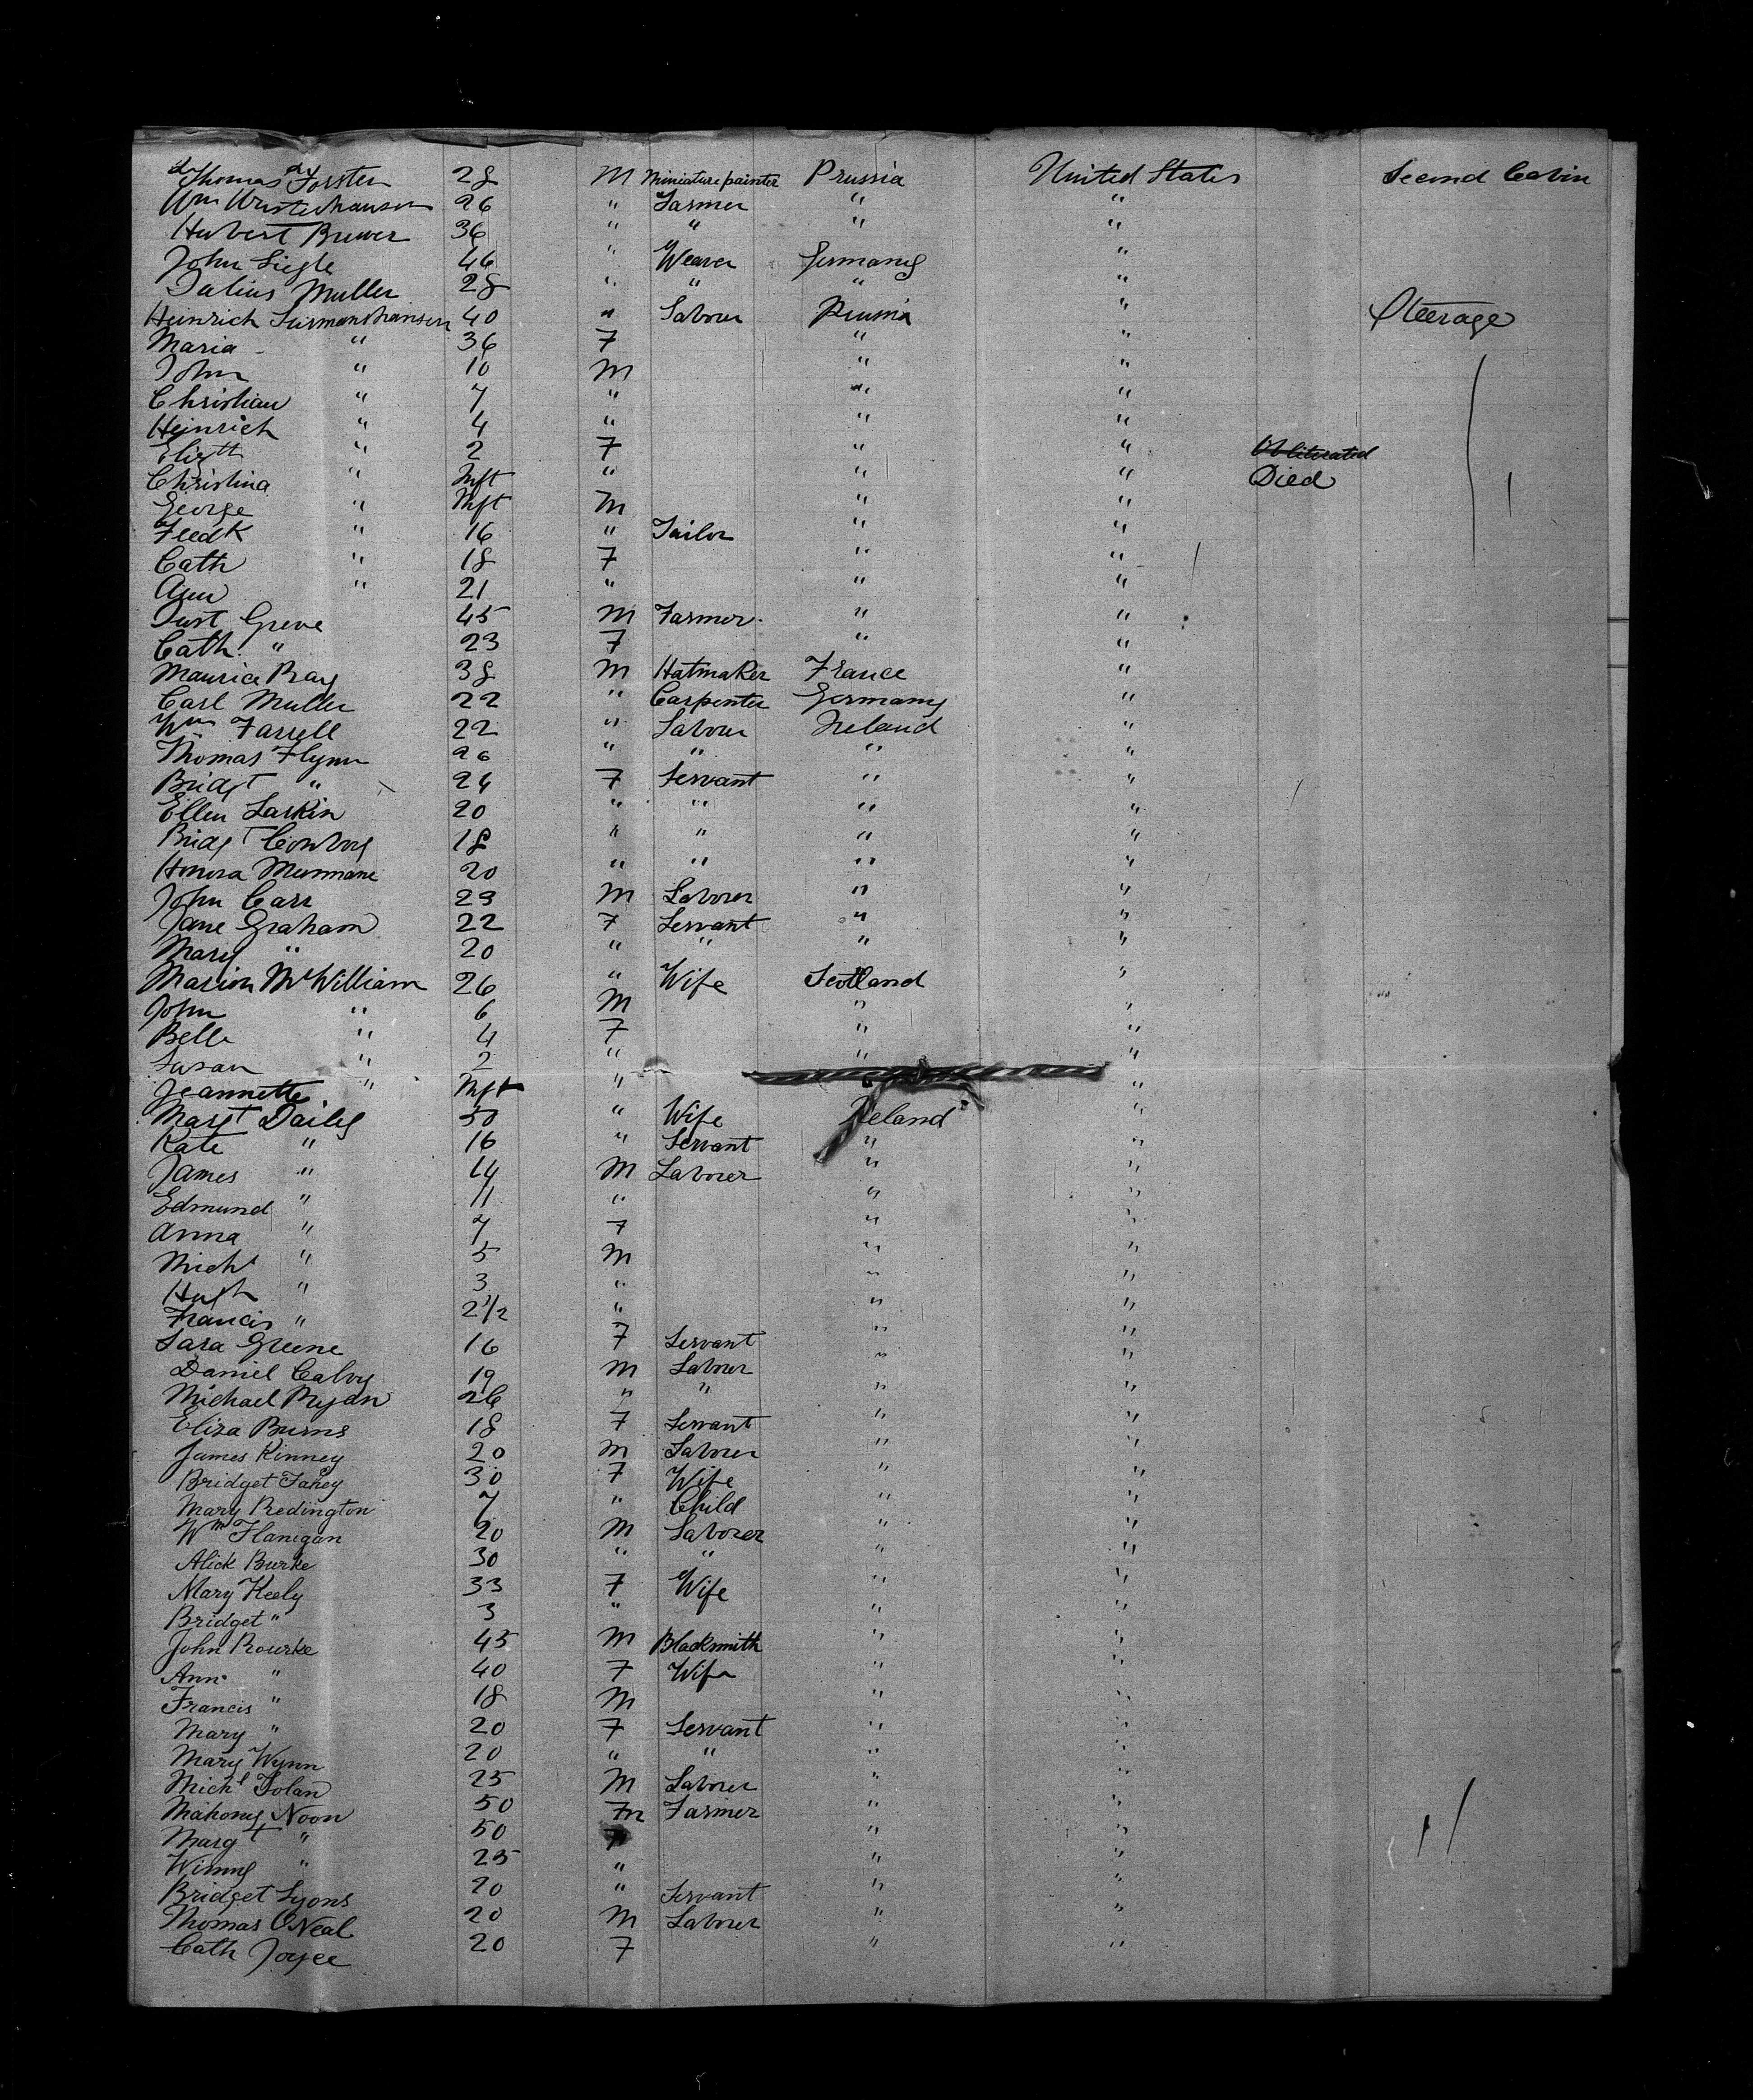 Thomas Forster 28 M Miniature painter Prussia United States Second Cabin
Wm 26 " Farmer " "
Hubert Brewer 36 " " " "
John Siegle 46 " Weaver Germany "
Julius Muller 28 " " " "
Heinrich 40 " Labour Prussia " Steerage
Maria " 36 F " "
John " 10 M " "
Christian " 7 " " "
Heinrich " 4 " " "
Elizth " 2 F " " Obliterated
Christina " Inft " " " Died
George " Inft M " "
Fredk " 16 " Tailor " "
Cath " 18 F " "
Ann " 21 " " "
Just Greve 45 M Farmer " "
Cath. " 23 F " "
Maurice Bay 38 M Hatmaker France "
Carl Muller 22 " Carpenter Germany "
Wm Farrell 22 " Labour Ireland "
Thomas Flynn 26 " " " "
Bridgt " 24 F Servant " "
Ellen Larkin 20 " " " "
Bridgt Conboy 18 " " " "
Honora Munnane 20 " " " "
John Carr 23 M Laborer " "
Jane Graham 22 F Servant " "
Mary " 20 " " " "
Marion McWilliam 26 " Wife Scotland "
John " 6 M " "
Belle " 4 F " "
Susan " 2 " " "
Jeannette " Inft " "
Margt Dailey 50 " Wife Ireland "
Kate " 16 " Servant " "
James " 14 M Laborer " "
Edmund " 11 " " "
Anna " 7 F " "
Michl " 5 M " "
Hugh " 3 " " "
Francis " 2 1/2 " " "
Sara Greene 16 F Servant " "
Daniel Calvy 19 M Laborer " "
Michael Ryan 26 " " " "
Eliza Burns 18 F Servant " "
James Kinney 20 M Laborer " "
Bridget Fahey 30 F Wife " "
Mary Redington 7 " Child " "
Wm Flanigan 20 M Laborer " "
Alick Burke 30 " " " "
Mary Keely 33 F Wife " "
Bridget " 3 " " "
John Rourke 45 M Blacksmith " "
Ann " 40 F Wife " "
Francis " 18 M " "
Mary " 20 F Servant " "
Mary Wynn 20 " " " "
Michl Folan 25 M Laborer " "
Mahony Noon 50 m Farmer " "
Margt " 50 F " "
Winny " 25 " " "
Bridget Lyons 20 " Servant " "
Thomas ONeal 20 M Laborer " "
Cath Joyce 20 F " "